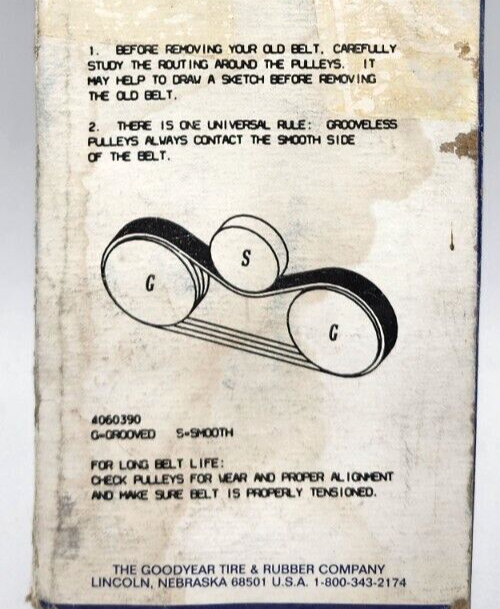 1. BEFORE REMOVING YOUR OLD BELT, CAREFULLY
STUDY THE ROUTING AROUND THE PULLEYS. IT
MAY HELP TO DRAW A SKETCH BEFORE REMOVING
THE OLD BELT.
2. THERE IS ONE UNIVERSAL RULE: GROOVELESS
PULLEYS ALWAYS CONTACT THE SMOOTH SIDE
OF THE BELT.
S
G
G
4060390
G=GROOVED S=SMOOTH
FOR LONG BELT LIFE:
CHECK PULLEYS FOR WEAR AND PROPER ALIGNMENT
AND MAKE SURE BELT IS PROPERLY TENSIONED.
THE GOODYEAR TIRE & RUBBER COMPANY
LINCOLN, NEBRASKA 68501 U.S.A. 1-800-343-2174